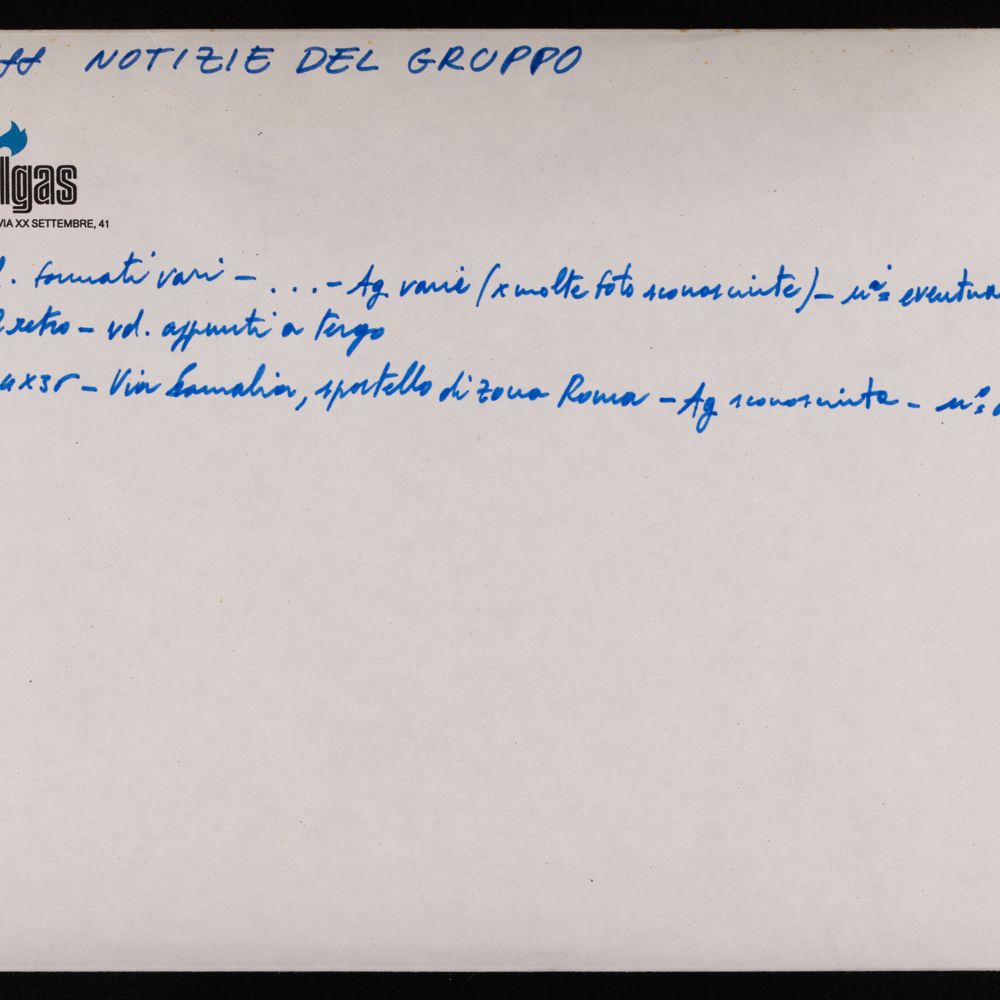 NOTIZIE DEL GRUPPO
lgas
VIA XX SETTEMBRE, 41
formati vari - ... - Ag varie (x molte foto sconosciute) - n.i
retro - vd. appunti a tergo
4x35 - Via Somalia, sportello di zona Roma - Ag sconosciuta - n.°